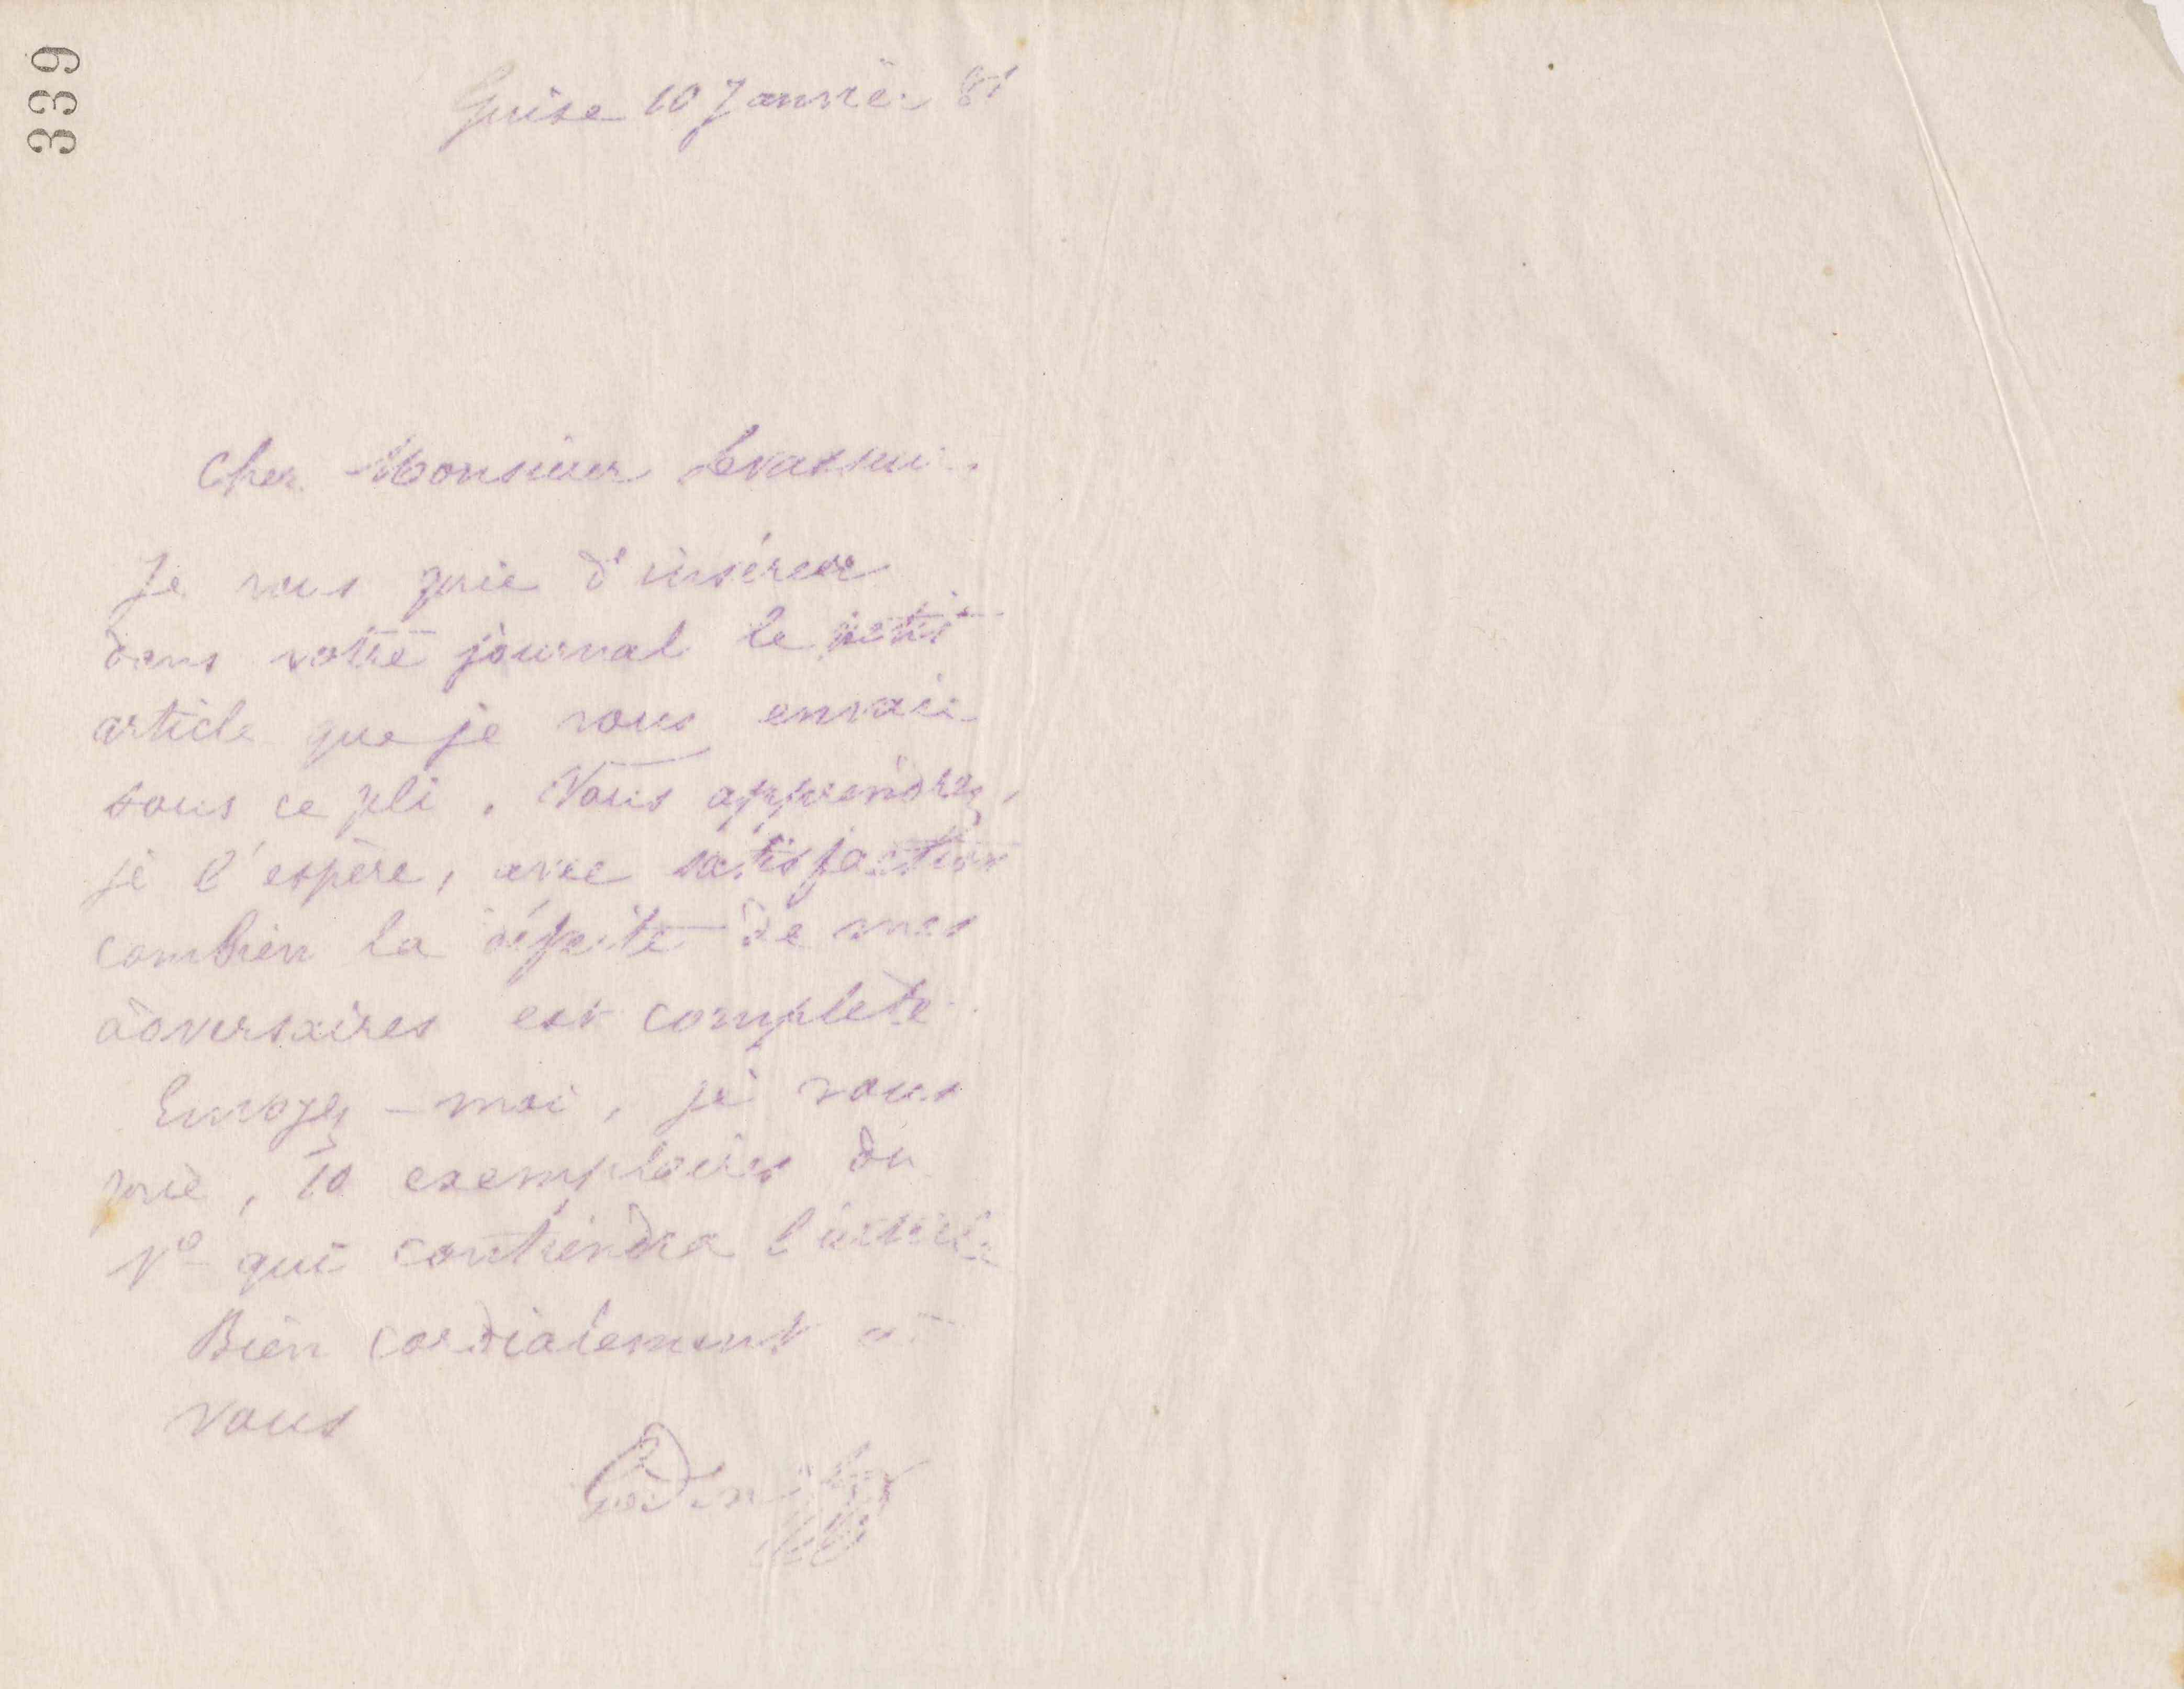 339
Guise 10 Janvier 81
Cher Monsieur Levasseur.
Je vous prie d'insérer
dans votre journal le petit
article que je vous envoie
sous ce pli. Vous apprendrez,
je l'espère, avec satisfaction
combien la défaite de mes
adversaires est complète.
Envoyez-moi, je vous
prie, 10 exemplaires du
No qui contiendra l'article
Bien cordialement à
vous
Godin